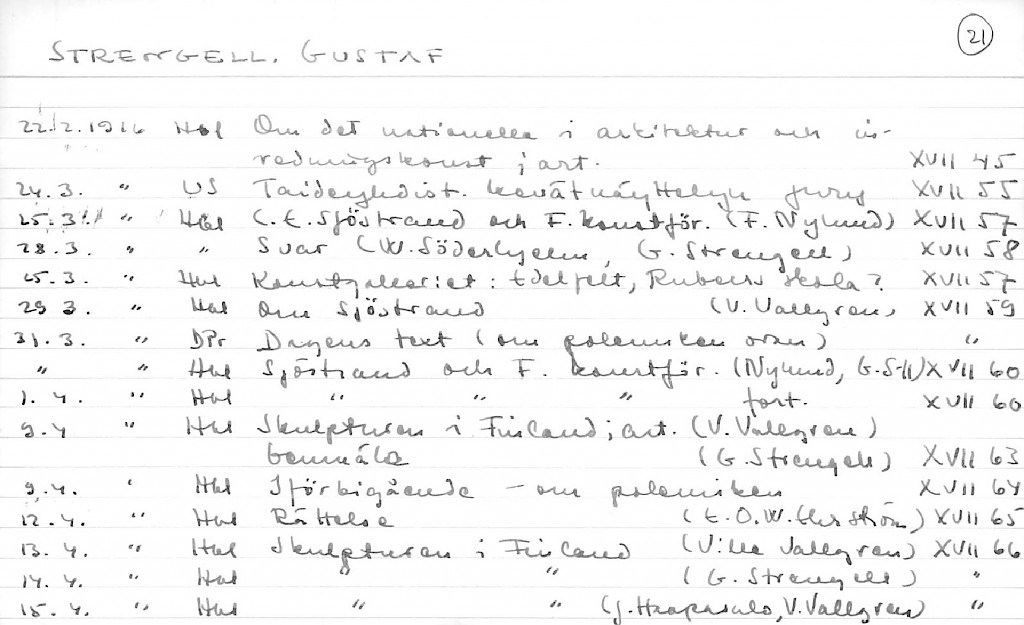 21
STRENGELL, GUSTAF
22.2.1916 Hbl Om det nationella i arkitektur och in-
redningskonst; art. XVII 45
24.3. " US Taideyhdist. kevätnäyttelyn jury XVII 55
25.3. " Hbl C.E. Sjöstrand och F. konstför. (F. Nylund) XVII 57
28.3. " " Svar (W. Söderhjelm, G. Strengell) XVII 58
25.3. " Hbl Konstgalleriet: Edelfelt, Rubens skola? XVII 57
29 3. " Hbl Om Sjöstrand (V. Vallgren, XVII 59
31.3. " DPr Dagens text (om polemiken ovan) "
" " Hbl Sjöstrand och F. konstför. (Nylund, G.S-ll) XVII 60
1.4. " Hbl " " " fort. XVII 60
9.4 " Hbl Skulpturen i Finland; art. (V. Vallgren)
genmäle (G. Strengell) XVII 63
9.4. " Hbl I förbigående – om polemiken XVII 64
12.4. " Hbl Rättelse (E.O.W. Ehrström) XVII 65
13.4. " Hbl Skulpturen i Finland (Ville Vallgren) XVII 66
14.4. " Hbl " " (G. Strengell) "
15.4. " Hbl " " (J. Haapasalo, V. Vallgren) "